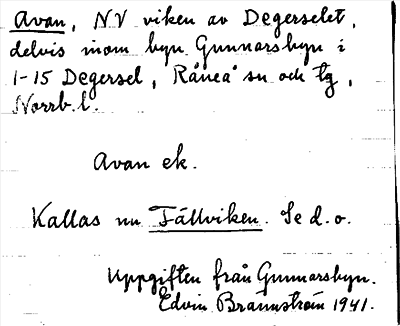 Avan, NV viken av Degerselet,
delvis inom byn Gunnarsbyn i
1-15 Degersel, Råneå sn och tg,
Norrb. l.
Avan ek.
Kallas nu Fällviken. Se d.o.
Uppgiften från Gunnarsbyn.
Edvin Brännström 1941.